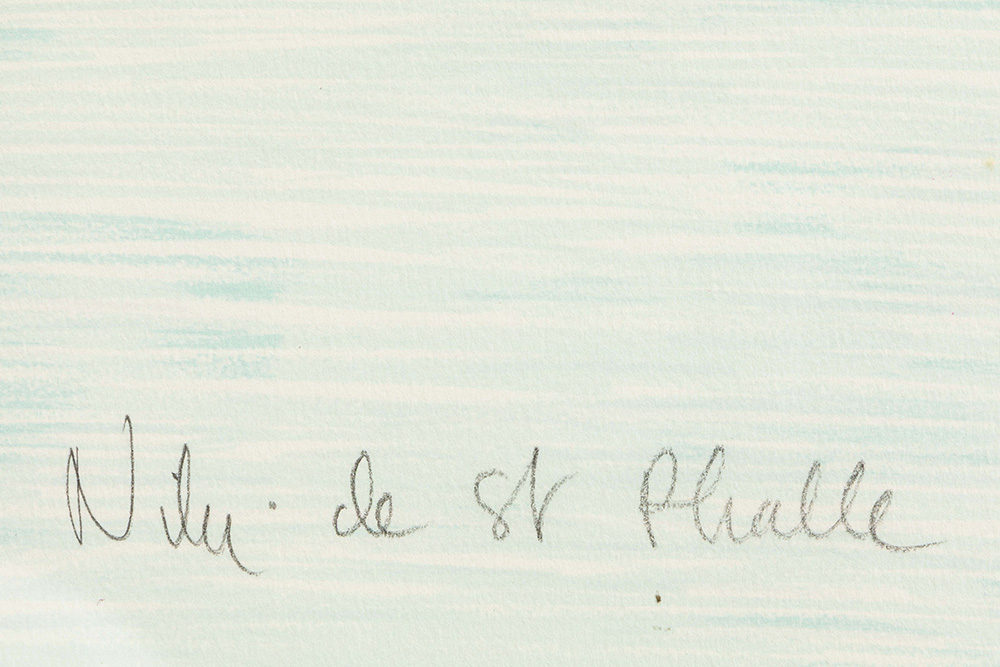 Niki de St Phalle